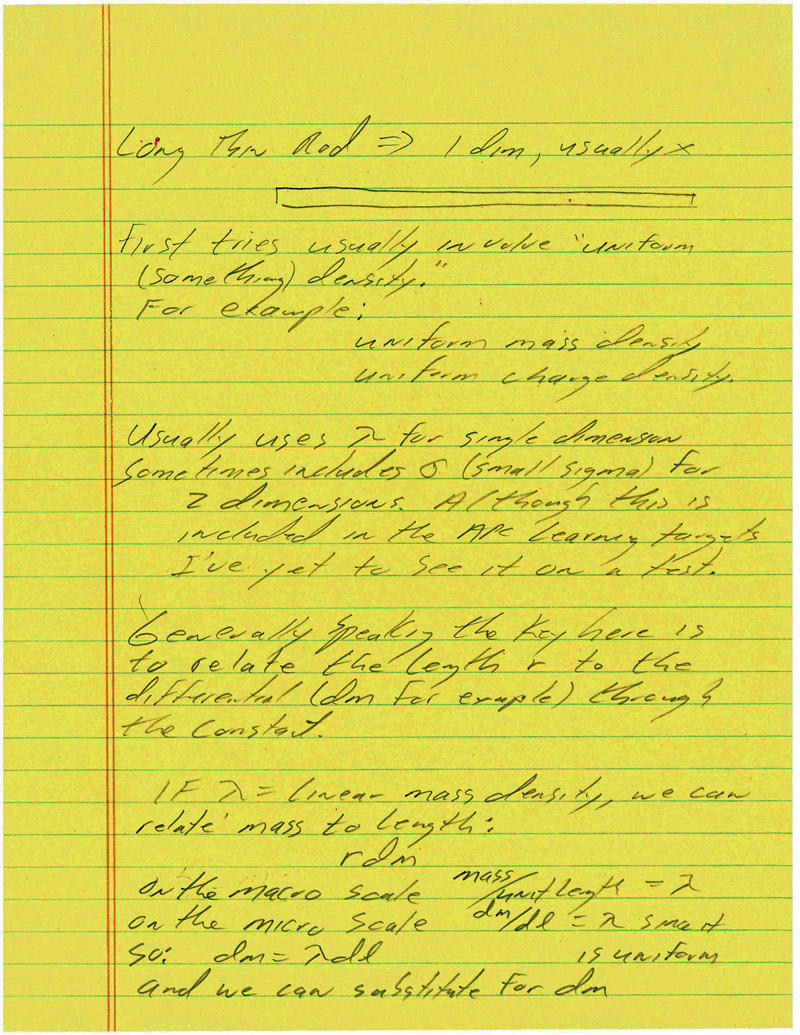 Long Thin Rod => 1 dim, usually x
First tries usually involve "uniform
(something) density."
For example:
uniform mass density
uniform charge density.
Usually uses λ for single dimension
sometimes includes σ (small sigma) for
2 dimensions. Although this is
included in the APC Learning targets
I've yet to see it on a test.
Generally speaking the key here is
to relate the length r to the
differential (dm for example) through
the constant.
IF λ = linear mass density, we can
relate mass to length:
r dm
on the macro scale mass/unit length = λ
on the micro scale dm/dl = λ since it
so: dm = λdl is uniform
and we can substitute for dm